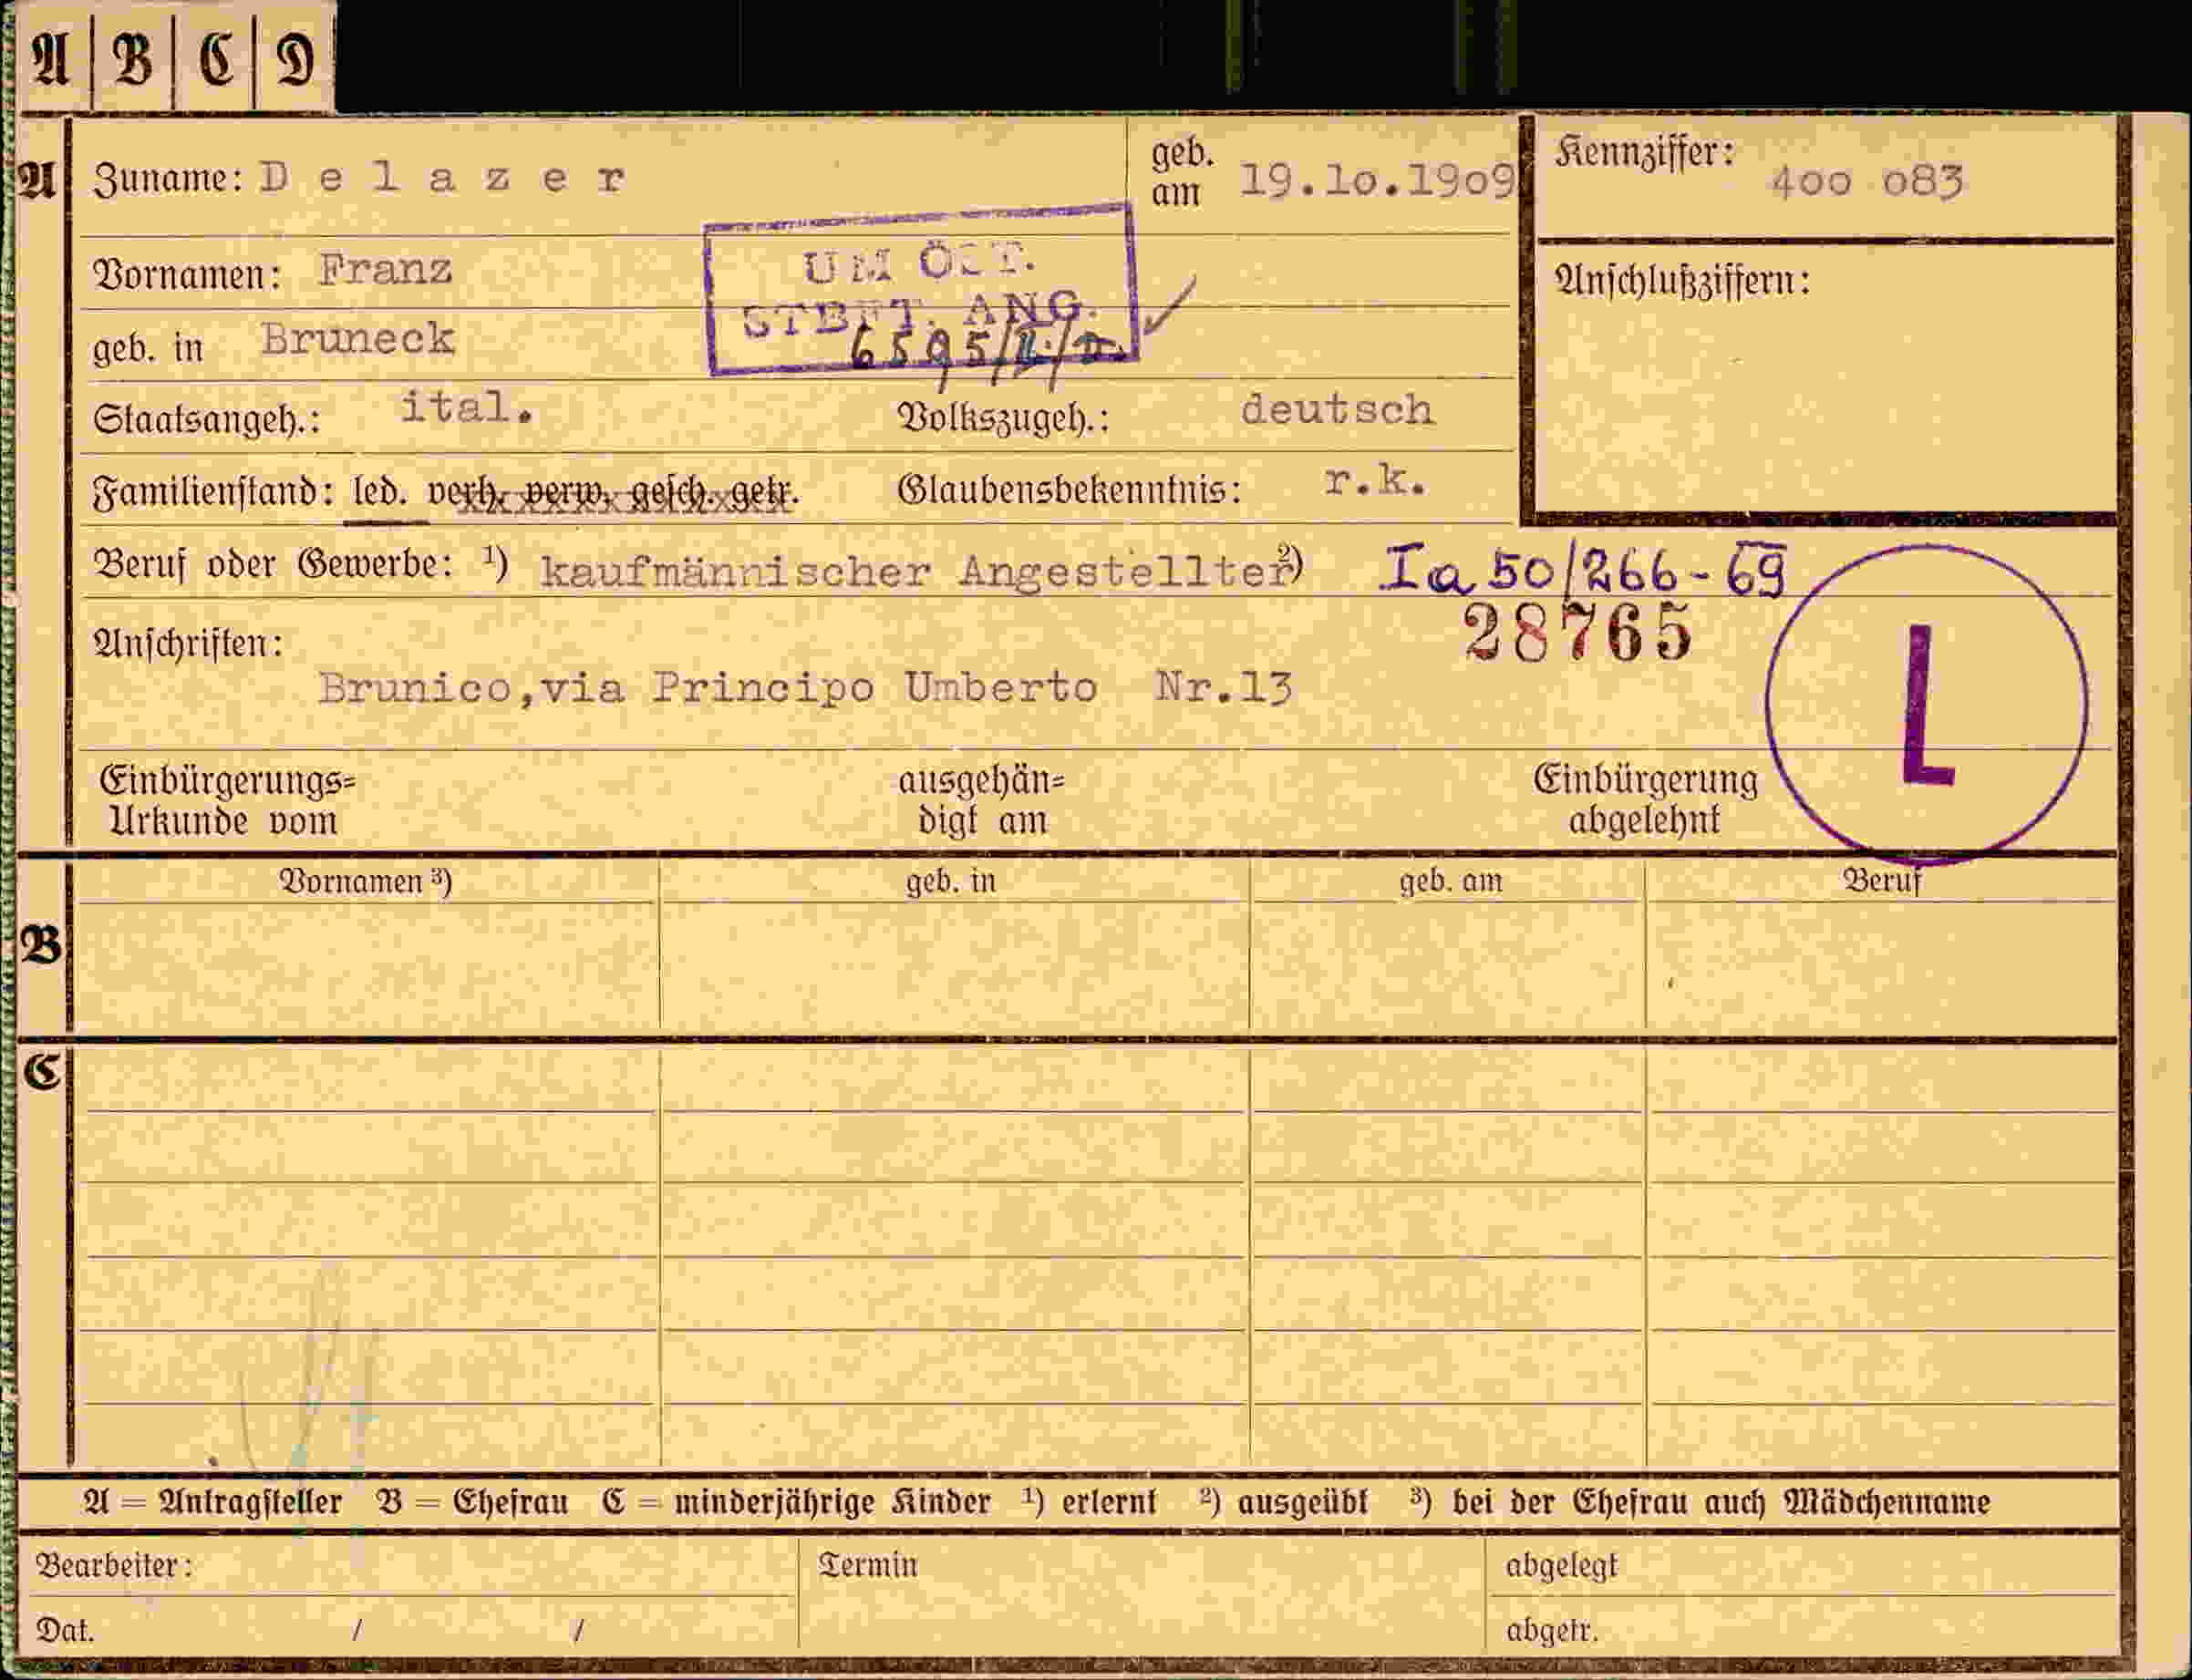 A B C D
A
Zuname: Delazer
geb. am 19.10.1909
Kennziffer: 400 083
Vornamen: Franz
UM ÖST.
STBFT. ANG.
Anschlußziffern:
geb. in Bruneck
Staatsangeh.: ital. Volkszugeh.: deutsch
Familienstand: led. verh. verw. gesch. getr. Glaubensbekenntnis: r.k.
Beruf oder Gewerbe: ¹) kaufmännischer Angestellter ²) Ia 50/266-69
28765
Anschriften:
Brunico,via Principo Umberto Nr.13
L
Einbürgerungs=
Urkunde vom
ausgehän=
digt am
Einbürgerung
abgelehnt
B
Vornamen ³) geb. in geb. am Beruf
C
A = Antragsteller B = Ehefrau C = minderjährige Kinder ¹) erlernt ²) ausgeübt ³) bei der Ehefrau auch Mädchenname
Bearbeiter: Termin abgelegt
Dat. / / abgetr.